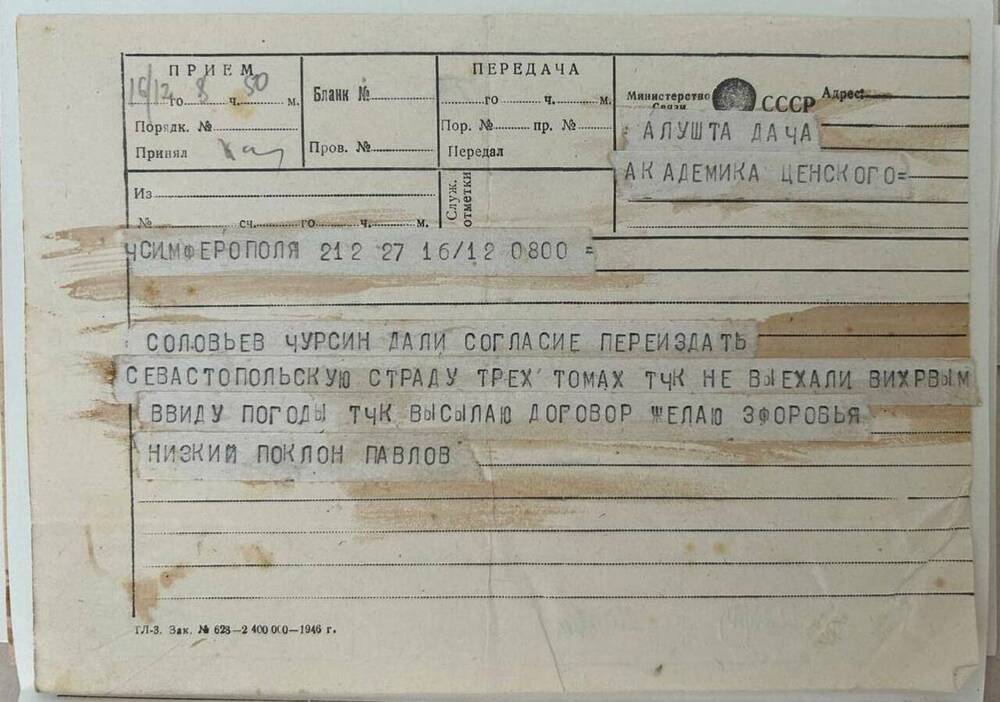 ПРИЕМ
16/12 го 8 ч. 50 м.
Порядк. №
Принял
Бланк №
Пров. №
ПЕРЕДАЧА
го ч. м.
Пор. № пр. №
Передал
Министерство Связи СССР Адрес:
АЛУШТА ДАЧА
АКАДЕМИКА ЦЕНСКОГО=
Из
№ сч. го ч. м.
Служ. отметки
ЧСИМФЕРОПОЛЯ 212 27 16/12 0800 =
СОЛОВЬЕВ ЧУРСИН ДАЛИ СОГЛАСИЕ ПЕРЕИЗДАТЬ
СЕВАСТОПОЛЬСКУЮ СТРАДУ ТРЕХ ТОМАХ ТЧК НЕ ВЫЕХАЛИ ВИХРВЫМ
ВВИДУ ПОГОДЫ ТЧК ВЫСЫЛАЮ ДОГОВОР ЖЕЛАЮ ЗФОРОВЬЯ
НИЗКИЙ ПОКЛОН ПАВЛОВ
ГЛ-3. Зак. № 628—2 400 000—1946 г.